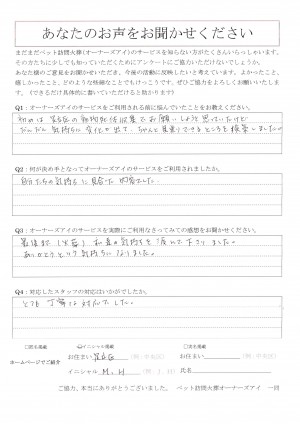 あなたのお声をお聞かせください
まだまだペット訪問火葬(オーナーズアイ)のサービスを知らない方がたくさんいらっしゃいます。
その方たちに少しでも知っていただくためにアンケートにご協力いただけないでしょうか。
あなた様のご意見をお聞かせいただき、今後の活動に反映したいと考えています。よかったこと、
嬉しかったこと、どのような些細なことでもけっこうです。ぜひご協力をよろしくお願いいたしま
す。(できるだけ具体的に書いていただけると助かります)
Q1:オーナーズアイのサービスをご利用される前に悩んでいたことをお教えください。
初めは
の動物死体収集にお願いしようと思っていたけど
だんだん気持ちに変化が出て、ちゃんと見送りできるところを検索しました。
Q2:何が決め手となってオーナーズアイのサービスをご利用されましたか。
自分たちの気持ちに見合った内容でした
Q3:オーナーズアイのサービスを実際にご利用なさってみての感想をお聞かせください。
最後まで(火葬)私達の気持ちを
下さりました。
ありがとうという気持ちになりました。
Q4:対応したスタッフの対応はいかがでしたか。
とても丁寧な対応でした。
□匿名掲載 ☑イニシャル掲載 □実名掲載
ホームページでご紹介
お住まい
(例:中央区) お住まい (例:中央区)
イニシャル M.H (例:J.H) 氏名
ご協力、本当にありがとうございました。 ペット訪問火葬オーナーズアイ 一同